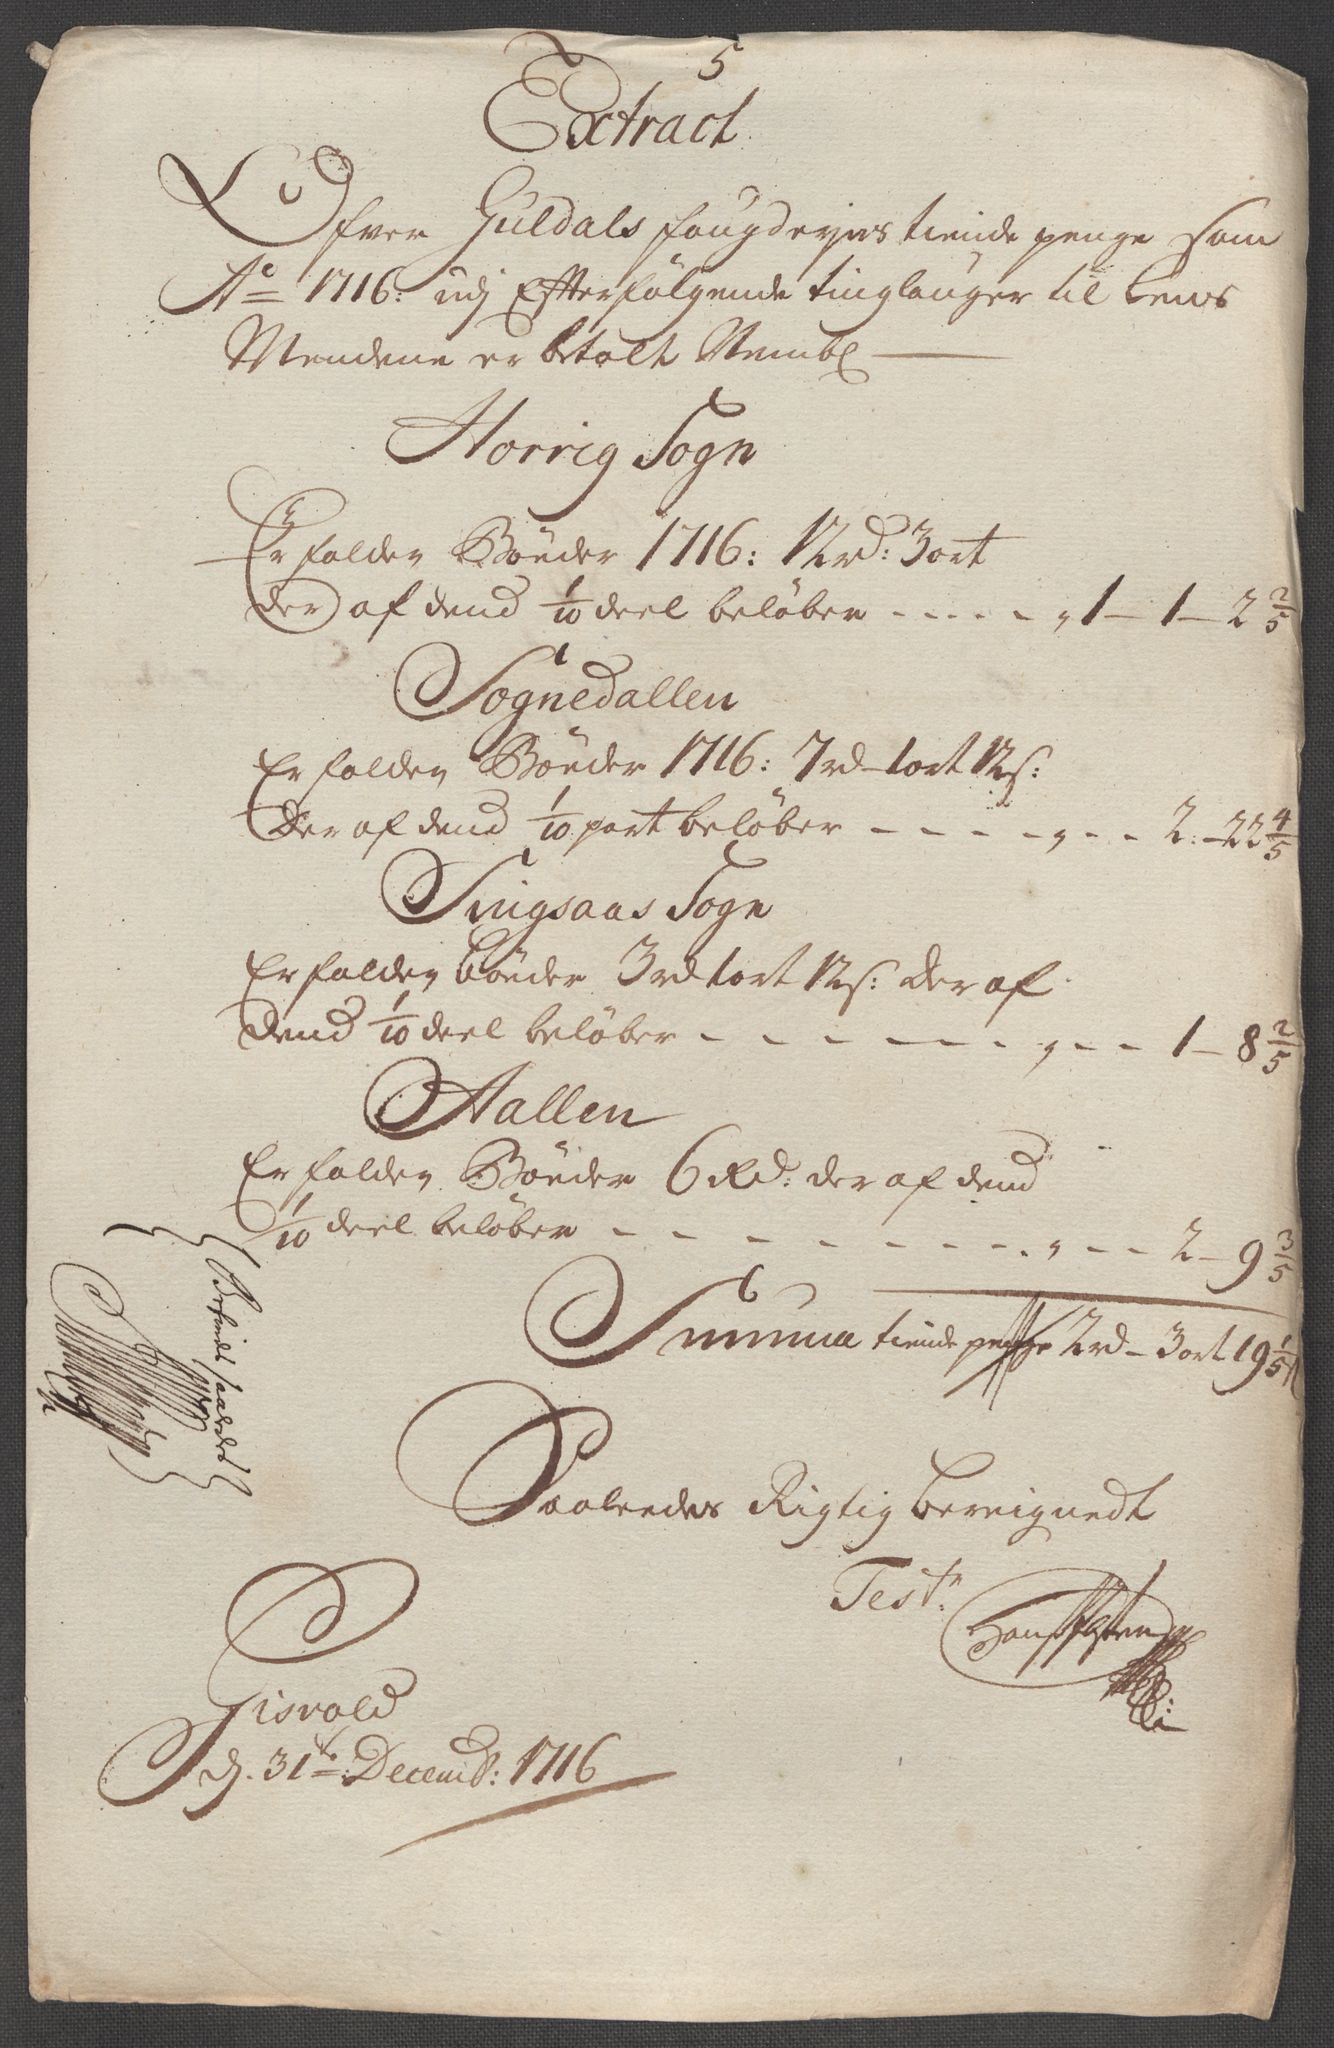 5
Extract
Ofver Guldals fougderies tiende penge som
Ao 1716: udj Efterfølgende tinglauger til Lens
Mendene er betalt Nembl
Horrig Sogn
Er falden Bøeder 1716: 12 rd: 3 ort
der af dend 1/10 deel beløber - - - - - „ 1 - 1 - 2 2/5
Sognedallen
Er falden Bøeder 1716: 7 rd - 1 ort 12 s:
Der af dend 1/10 part beløber - - - - - „ - - 2: - 22 4/5
Singsaas Sogn
Er falden bøeder 3 rd 1 ort 12 s: der af
dend 1/10 deel beløber - - - - - - - „ - - 1 - 8 2/5
Aallen
Er falden Bøeder 6 Rd: der af dend
1/10 deel beløber - - - - - - - - „ - - 2 - 9 3/5
Summa tiende penge 2 rd - 3 ort 19 1/5
Saaledes Rigtig bereignedt
Test:
Gisvold
d. 31te Decemb: 1716